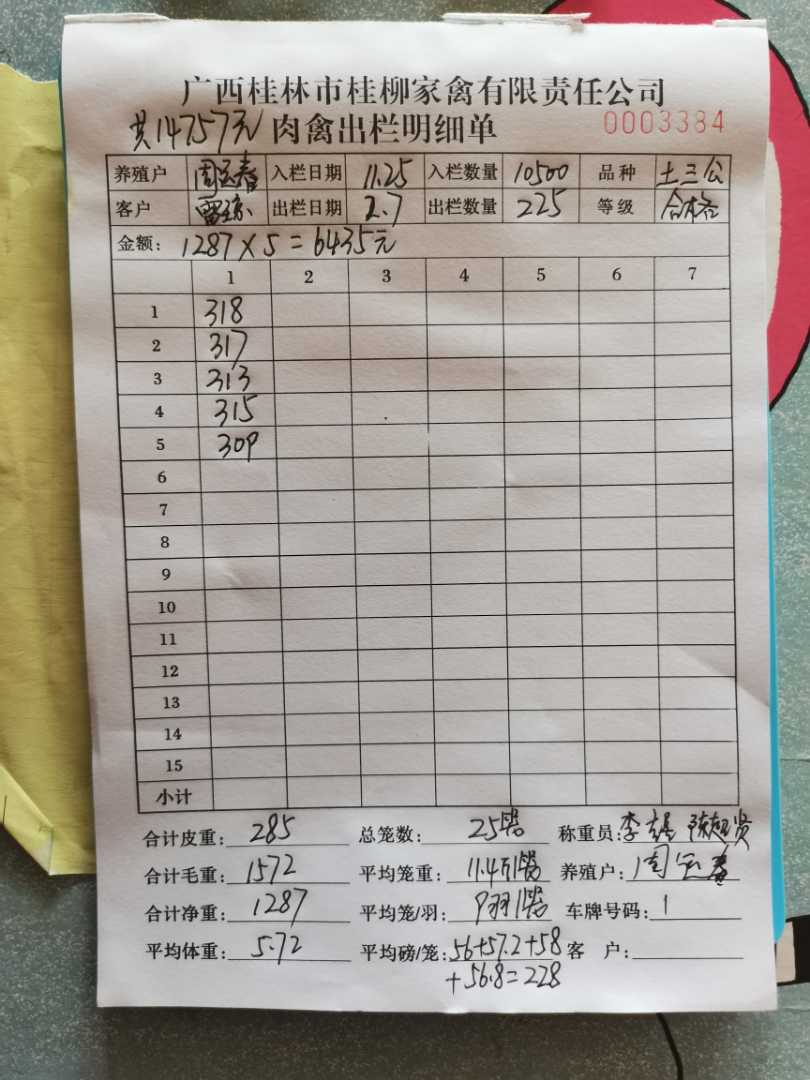 广西桂林市桂柳家禽有限责任公司
共14757元 肉禽出栏明细单 0003384
养殖户 周 春 入栏日期 11.25 入栏数量 10500 品种 土三公
客户 出栏日期 2.7 出栏数量 225 等级 合格
金额: 1287×5=6435元
1 2 3 4 5 6 7
1 318
2 317
3 313
4 315
5 309
6
7
8
9
10
11
12
13
14
15
小计
合计皮重: 285 总笼数: 25 称重员: 李 陈 贤
合计毛重: 1572 平均笼重: 11.4 养殖户: 周 春
合计净重: 1287 平均笼/羽: 9羽 车牌号码: 1
平均体重: 5.72 平均磅/笼: 56+57.2+58 客 户:
+56.8=228